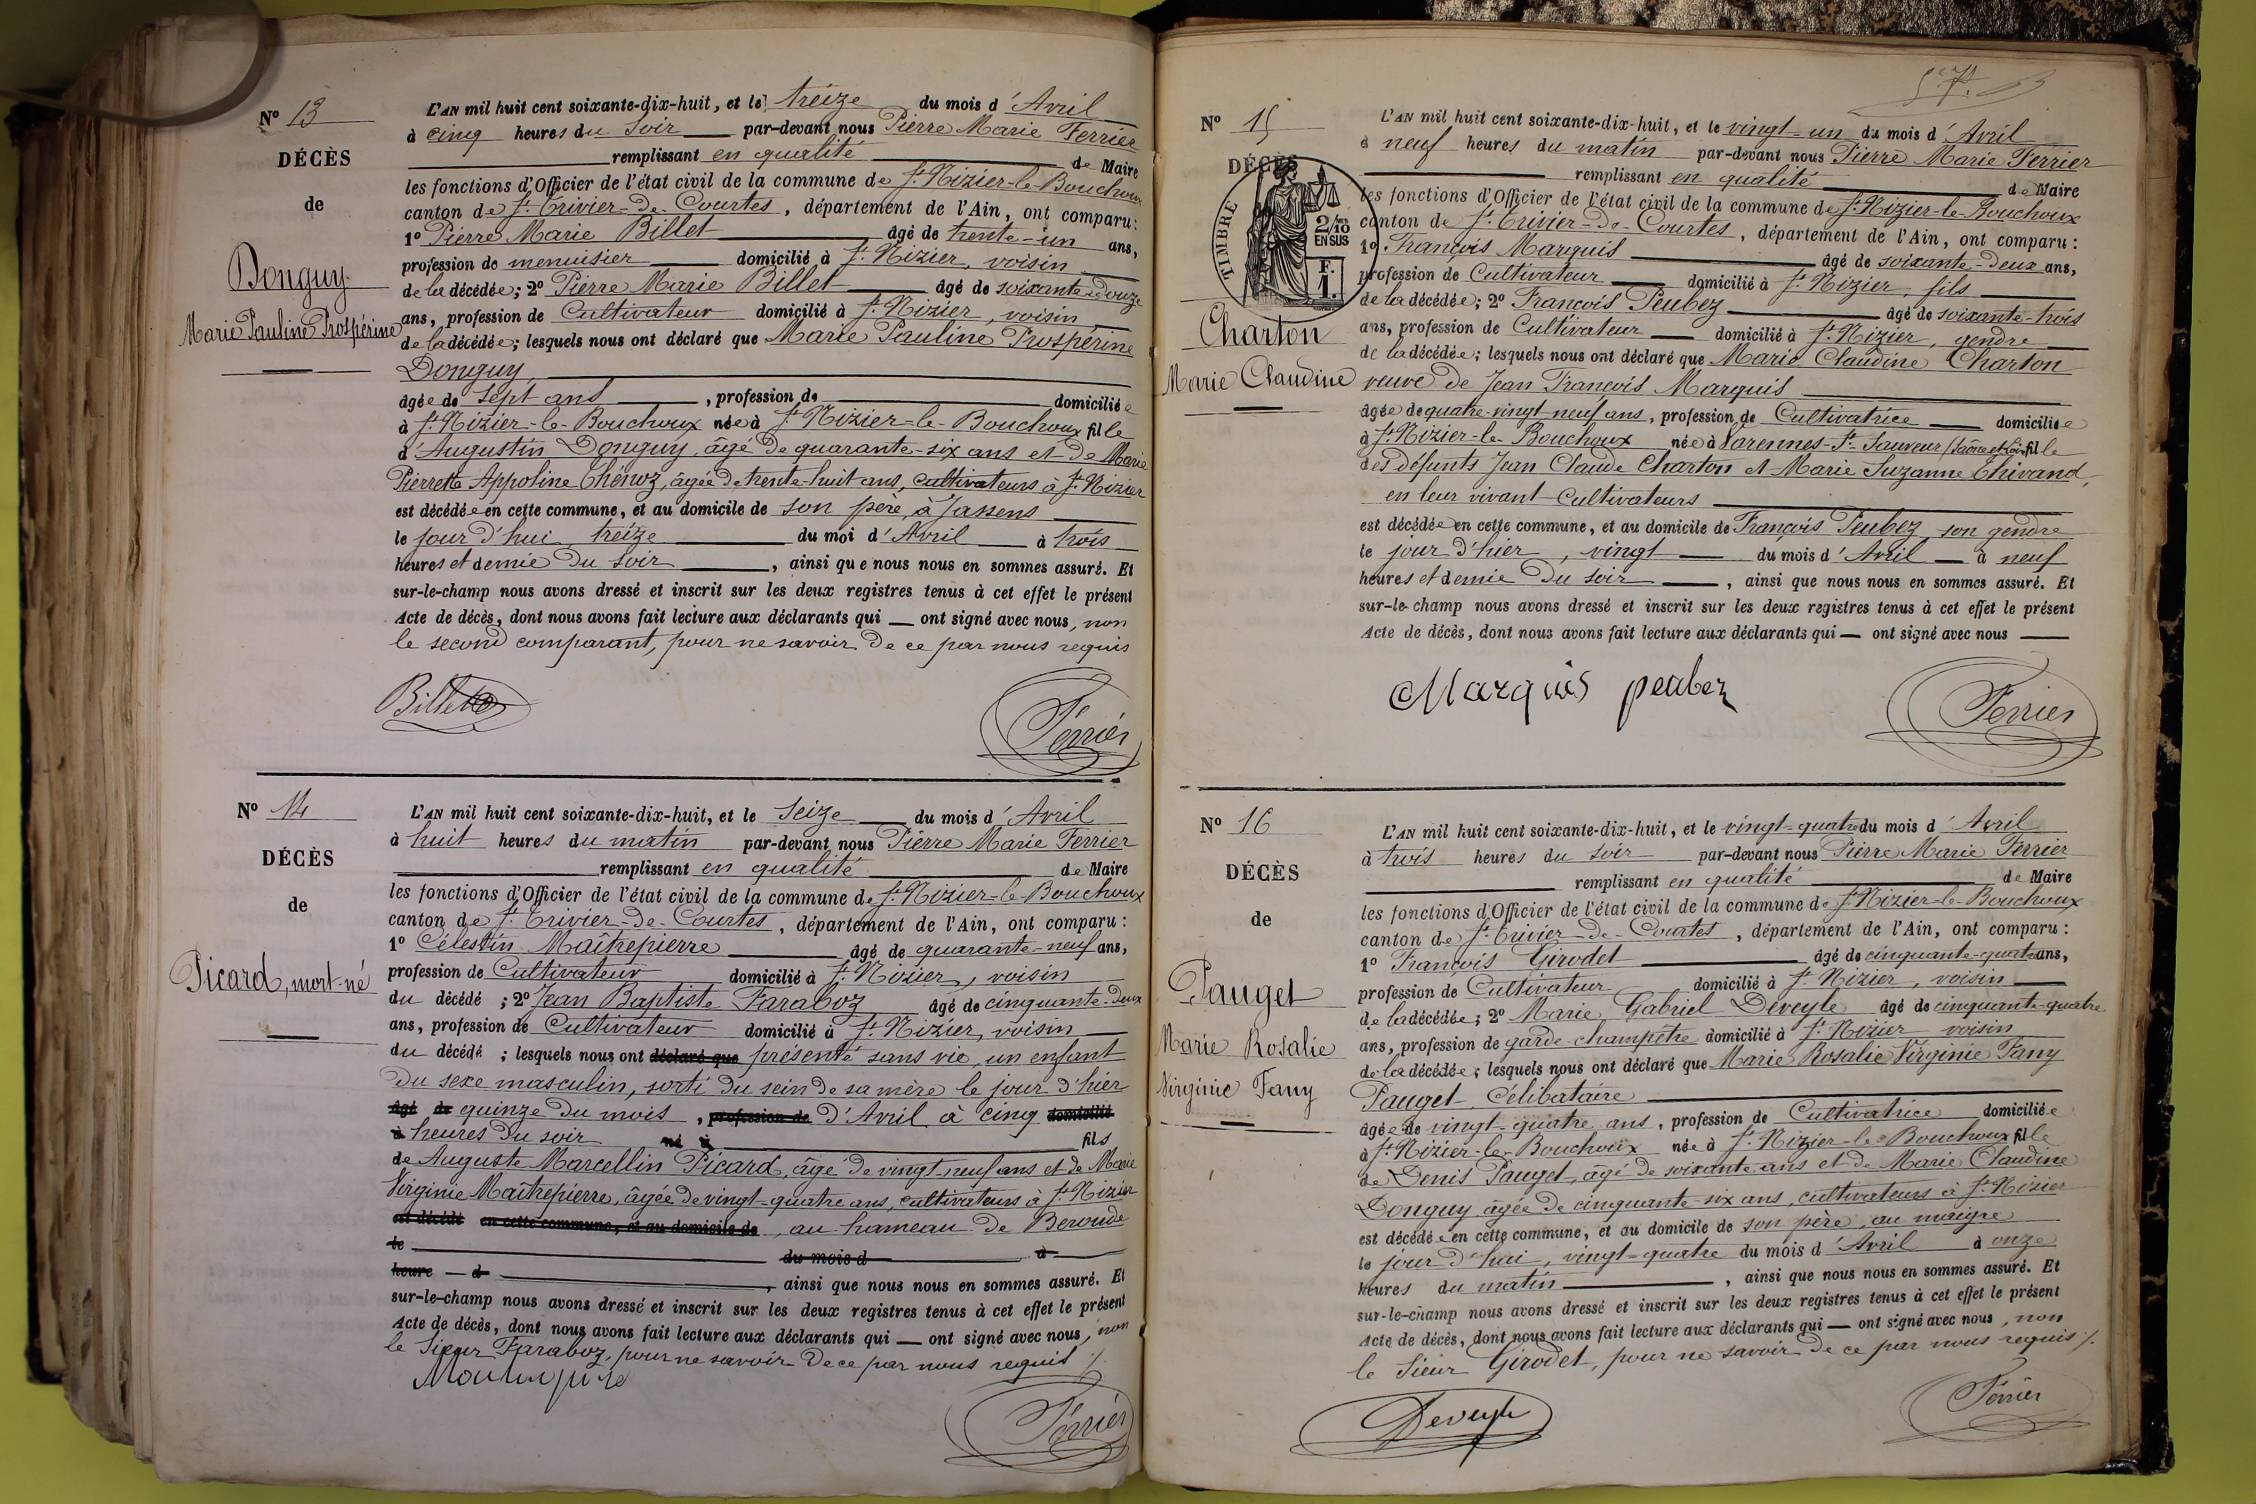 N° 13
DÉCÈS
de
Donguy
Marie Pauline Prospérine
L'AN mil huit cent soixante-dix-huit, et le treize du mois d'Avril
à cinq heures du soir par-devant nous Pierre Marie Ferrier
remplissant en qualité de Maire
les fonctions d'Officier de l'état civil de la commune de St. Nizier-le-Bouchoux
canton de St. Trivier-de-Courtes, département de l'Ain, ont comparu :
1° Pierre Marie Billet âgé de trente-un ans,
profession de menuisier domicilié à St. Nizier, voisin
de la décédée; 2° Pierre Marie Billet âgé de soixante-douze
ans, profession de Cultivateur domicilié à St. Nizier, voisin
de la décédée; lesquels nous ont déclaré que Marie Pauline Prospérine
Donguy
âgée de sept ans, profession de domiciliée
à St. Nizier-le-Bouchoux née à St. Nizier-le-Bouchoux fille
d'Augustin Donguy, âgé de quarante-six ans et de Marie
Pierrette Appoline Chênoz, âgée de trente-huit ans, cultivateurs à St. Nizier
est décédée en cette commune, et au domicile de son père, à Jassens
le jour d'hui treize du moi d'Avril à trois
heures et demie du soir, ainsi que nous nous en sommes assuré. Et
sur-le-champ nous avons dressé et inscrit sur les deux registres tenus à cet effet le présent
Acte de décès, dont nous avons fait lecture aux déclarants qui — ont signé avec nous, non
le second comparant, pour ne savoir de ce par nous requis
Billet
Ferrier
N° 14
DÉCÈS
de
Picard, mort-né
L'AN mil huit cent soixante-dix-huit, et le seize du mois d'Avril
à huit heures du matin par-devant nous Pierre Marie Ferrier
remplissant en qualité de Maire
les fonctions d'Officier de l'état civil de la commune de St. Nizier-le-Bouchoux
canton de St. Trivier-de-Courtes, département de l'Ain, ont comparu :
1° Célestin Maîtrepierre âgé de quarante-neuf ans,
profession de Cultivateur domicilié à St. Nizier, voisin
du décédé ; 2° Jean Baptiste Faraboz âgé de cinquante-deux
ans, profession de Cultivateur domicilié à St. Nizier, voisin
du décédé ; lesquels nous ont déclaré que présenté sans vie, un enfant
du sexe masculin, sorti du sein de sa mère le jour d'hier
âgé de quinze du mois, profession de d'Avril à cinq domicilié
à heures du soir né à fils
de Auguste Marcellin Picard, âgé de vingt-neuf ans et de Marie
Virginie Maîtrepierre, âgée de vingt-quatre ans, cultivateurs à St. Nizier
est décédé en cette commune, et au domicile de, au hameau de Beroude
le du mois d à
heure — d, ainsi que nous nous en sommes assuré. Et
sur-le-champ nous avons dressé et inscrit sur les deux registres tenus à cet effet le présent
Acte de décès, dont nous avons fait lecture aux déclarants qui — ont signé avec nous, non
le Sieur Faraboz, pour ne savoir de ce par nous requis ./.
Ferrier
N° 15
DÉCÈS
TIMBRE
2/10
EN SUS
F.
1.
Charton
Marie Claudine
L'AN mil huit cent soixante-dix-huit, et le vingt-un du mois d'Avril
à neuf heures du matin par-devant nous Pierre Marie Ferrier
remplissant en qualité de Maire
les fonctions d'Officier de l'état civil de la commune de St. Nizier-le-Bouchoux
canton de St. Trivier-de-Courtes, département de l'Ain, ont comparu :
1° François Marquis âgé de soixante-deux ans,
profession de Cultivateur domicilié à St. Nizier, fils
de la décédée; 2° François Peubez âgé de soixante-trois
ans, profession de Cultivateur domicilié à St. Nizier, gendre
de la décédée; lesquels nous ont déclaré que Marie Claudine Charton
veuve de Jean François Marquis
âgée de quatre-vingt-neuf ans, profession de Cultivatrice domiciliée
à St. Nizier-le-Bouchoux née à Varennes-St-Sauveur (Saône et Loire) fille
des défunts Jean Claude Charton et Marie Suzanne Chivand,
en leur vivant cultivateurs
est décédée en cette commune, et au domicile de François Peubez son gendre
le jour d'hier, vingt du mois d'Avril à neuf
heures et demie du soir, ainsi que nous nous en sommes assuré. Et
sur-le-champ nous avons dressé et inscrit sur les deux registres tenus à cet effet le présent
Acte de décès, dont nous avons fait lecture aux déclarants qui — ont signé avec nous
Marquis peubez
Ferrier
N° 16
DÉCÈS
de
Pauget
Marie Rosalie
Virginie Fany
L'AN mil huit cent soixante-dix-huit, et le vingt-quatre du mois d'Avril
à trois heures du soir par-devant nous Pierre Marie Ferrier
remplissant en qualité de Maire
les fonctions d'Officier de l'état civil de la commune de St. Nizier-le-Bouchoux
canton de St. Trivier-de-Courtes, département de l'Ain, ont comparu :
1° François Girodet âgé de cinquante-quatre ans,
profession de Cultivateur domicilié à St. Nizier, voisin
de la décédée; 2° Marie Gabriel Deveyle âgé de cinquante-quatre
ans, profession de garde-champêtre domicilié à St. Nizier voisin
de la décédée; lesquels nous ont déclaré que Marie Rosalie Virginie Fany
Pauget Célibataire
âgée de vingt-quatre ans, profession de Cultivatrice domiciliée
à St. Nizier-le-Bouchoux née à St. Nizier-le-Bouchoux fille
de Denis Pauget, âgé de soixante ans et de Marie Claudine
Donguy âgée de cinquante-six ans, cultivateurs à St. Nizier
est décédée en cette commune, et au domicile de son père, au maigre
le jour d'hui, vingt-quatre du mois d'Avril à onze
heures du matin, ainsi que nous nous en sommes assuré. Et
sur-le-champ nous avons dressé et inscrit sur les deux registres tenus à cet effet le présent
Acte de décès, dont nous avons fait lecture aux déclarants qui — ont signé avec nous, non
le Sieur Girodet, pour ne savoir de ce par nous requis ./.
Deveyle
Ferrier